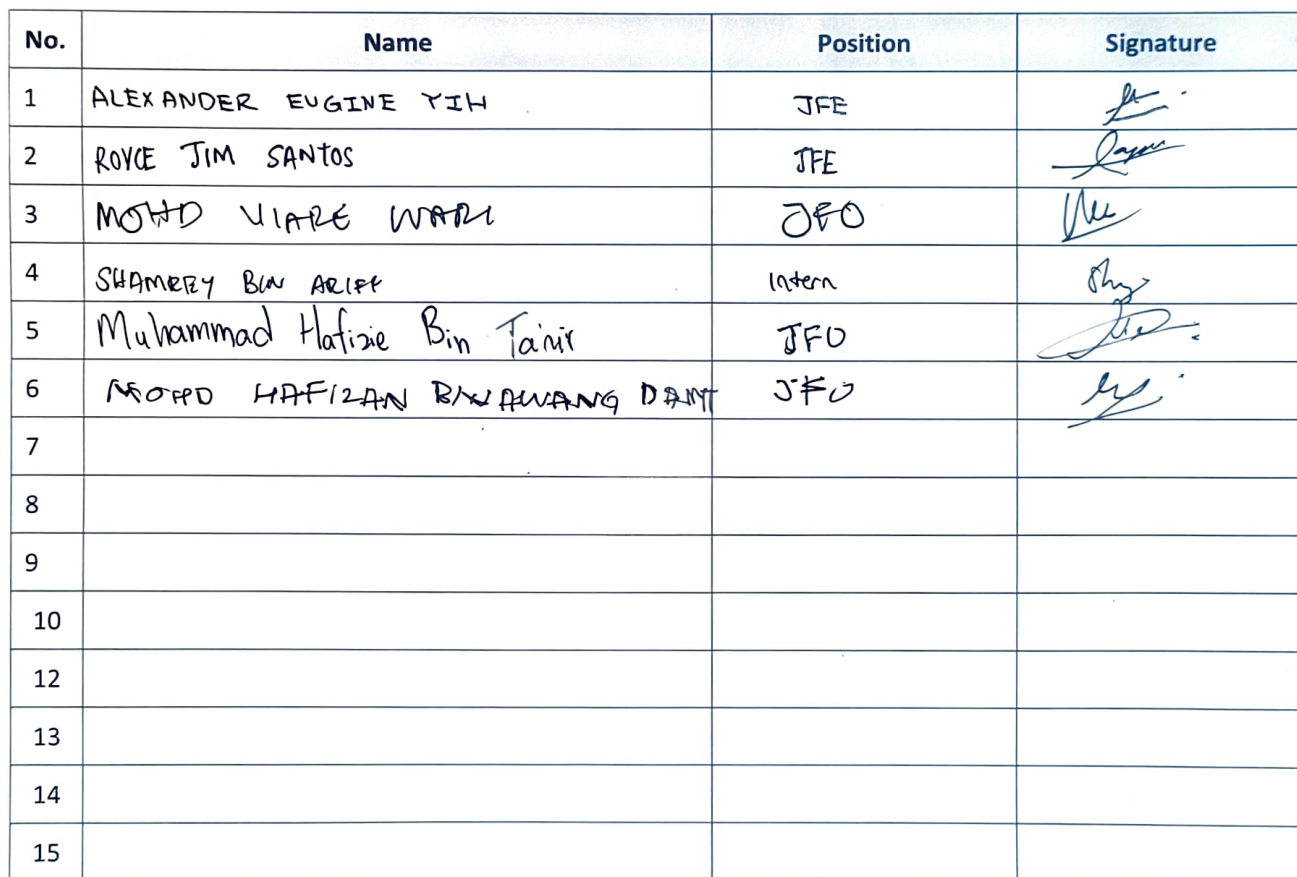 No. Name Position Signature
1 ALEXANDER EUGINE YIH JFE
2 ROYCE JIM SANTOS JFE
3 MOHD JFO
4 SHAMREY BIN ARIFF Intern
5 Muhammad Hafizie Bin Ta'mir JFO
6 MOHD HAFIZAN BIN AWANG DAMIT JFO
7
8
9
10
12
13
14
15